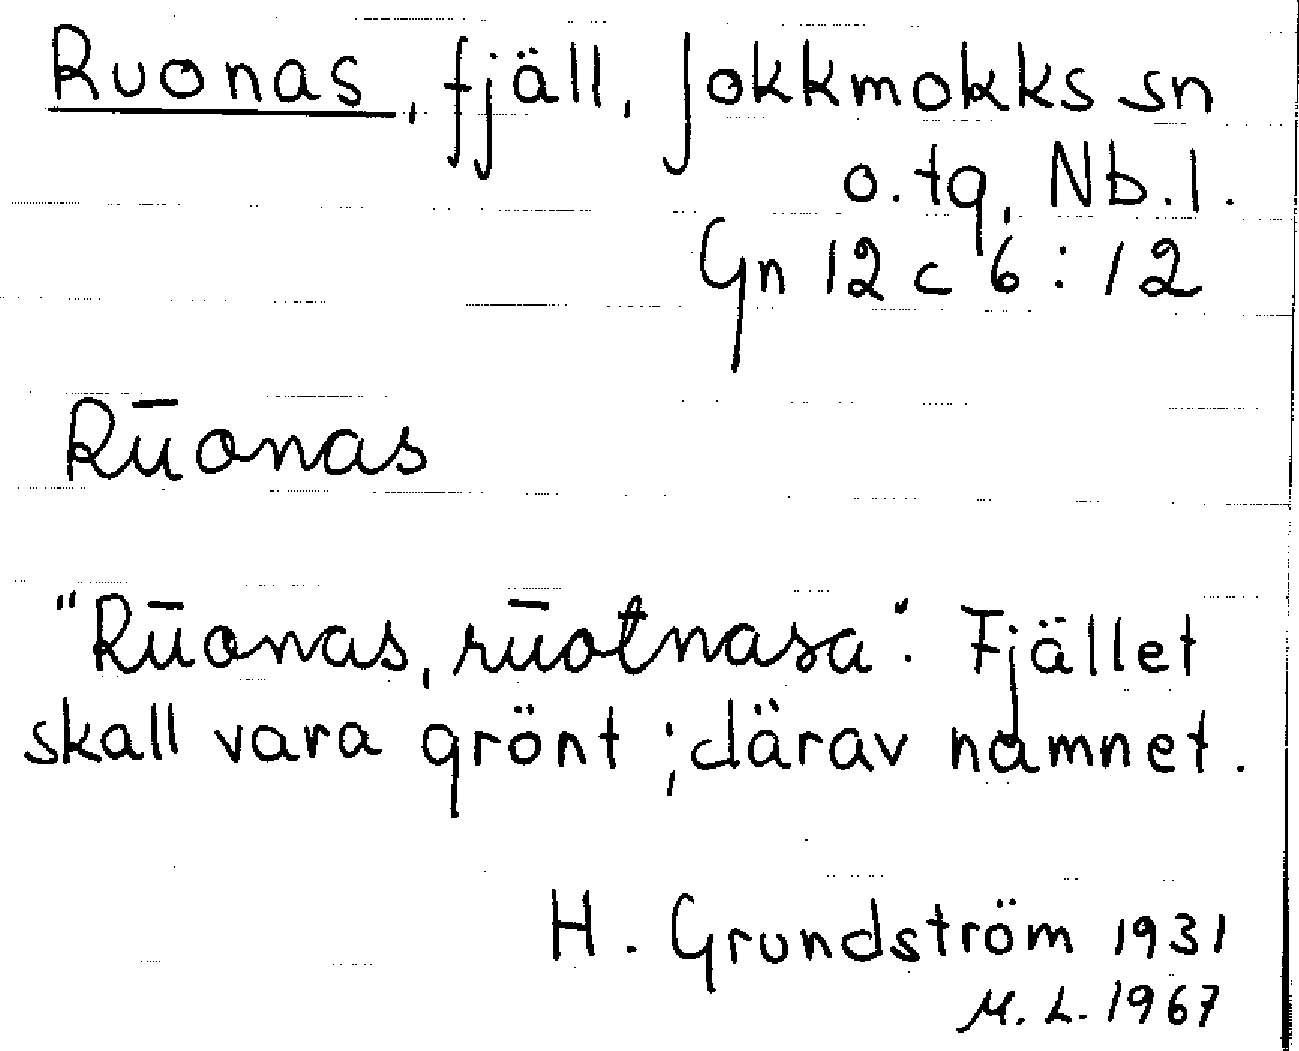 Ruonas, fjäll, Jokkmokks sn
o. tg, Nb. l.
Gn 12 c 6 : 12
Rūonas
"Rūonas, rūotnasa". Fjället
skall vara grönt ; därav namnet.
H. Grundström 1931
M. L. 1967